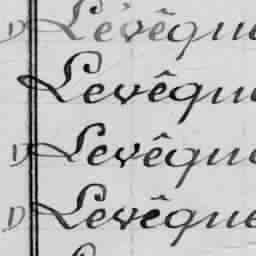 D Levêque
Levêque
D Levêque
D Levêque